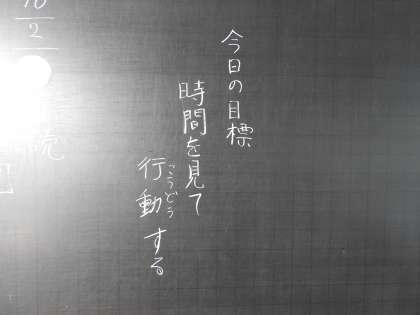 今日の目標
時間を見て
行動する
こうどう